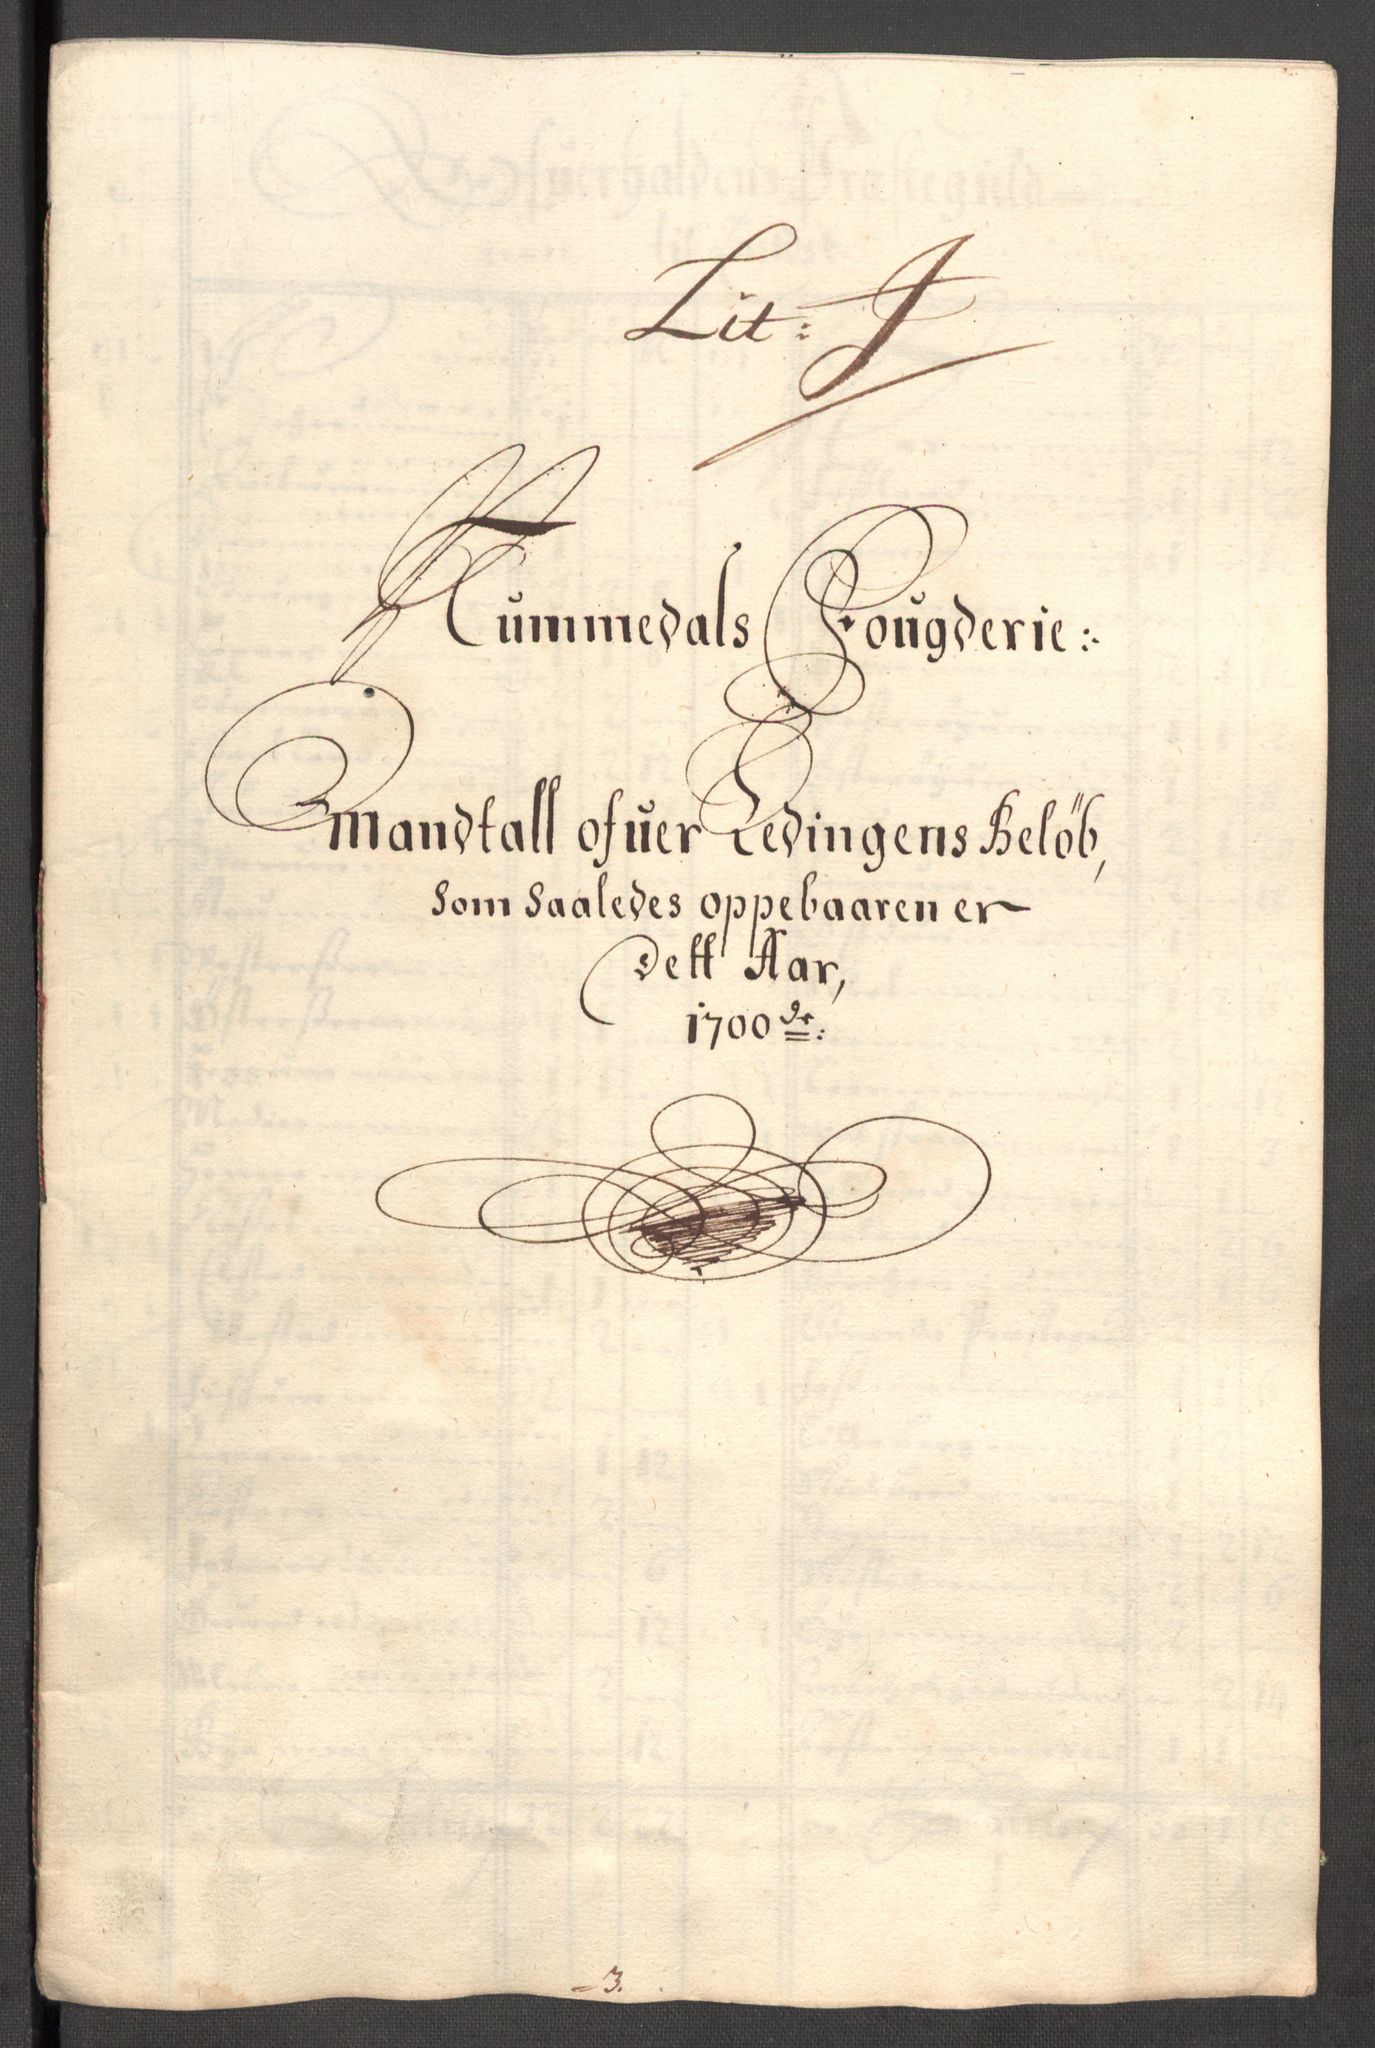 Lit: J
Nummedals Fougderie:
Mandtall ofuer Ledingens Belöb,
som saaledes oppebaaren er
dett Aar,
1700 de:
3.